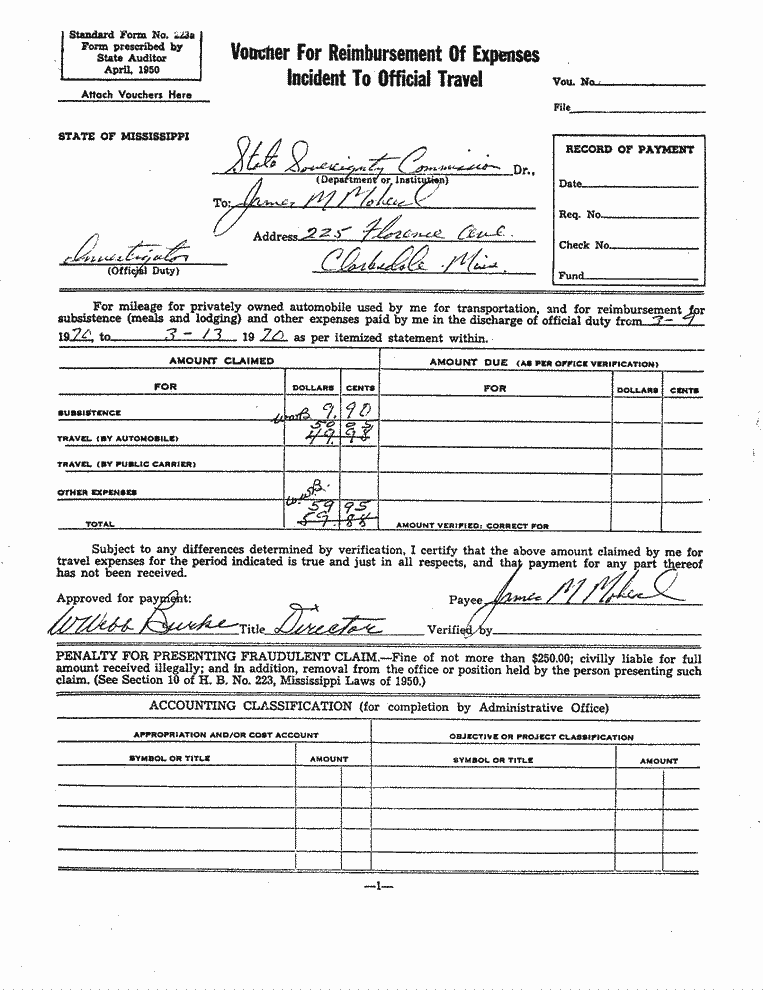 Standard Form No. 223a
Form prescribed by
State Auditor
April, 1950
Attach Vouchers Here
Voucher For Reimbursement Of Expenses
Incident To Official Travel
Vou. No.
File
STATE OF MISSISSIPPI
State Sovereignty Commission Dr.,
(Department or Institution)
To: James M Mohead
Address 225 Florence Ave.
Clarksdale Miss.
Investigator
(Official Duty)
RECORD OF PAYMENT
Date
Req. No.
Check No.
Fund
For mileage for privately owned automobile used by me for transportation, and for reimbursement for
subsistence (meals and lodging) and other expenses paid by me in the discharge of official duty from 3-9
1970, to 3-13 1970 as per itemized statement within.
AMOUNT CLAIMED
AMOUNT DUE (AS PER OFFICE VERIFICATION)
FOR DOLLARS CENTS FOR DOLLARS CENTS
SUBSISTENCE 9. 90
50 05
TRAVEL (BY AUTOMOBILE) 49. 98
TRAVEL (BY PUBLIC CARRIER)
OTHER EXPENSES W.W.B.
59 95
TOTAL 59. 88 AMOUNT VERIFIED; CORRECT FOR
Subject to any differences determined by verification, I certify that the above amount claimed by me for
travel expenses for the period indicated is true and just in all respects, and that payment for any part thereof
has not been received.
Approved for payment: Payee James M Mohead
W Webb Burke Title Director Verified by
PENALTY FOR PRESENTING FRAUDULENT CLAIM.—Fine of not more than $250.00; civilly liable for full
amount received illegally; and in addition, removal from the office or position held by the person presenting such
claim. (See Section 10 of H. B. No. 223, Mississippi Laws of 1950.)
ACCOUNTING CLASSIFICATION (for completion by Administrative Office)
APPROPRIATION AND/OR COST ACCOUNT OBJECTIVE OR PROJECT CLASSIFICATION
SYMBOL OR TITLE AMOUNT SYMBOL OR TITLE AMOUNT
—1—